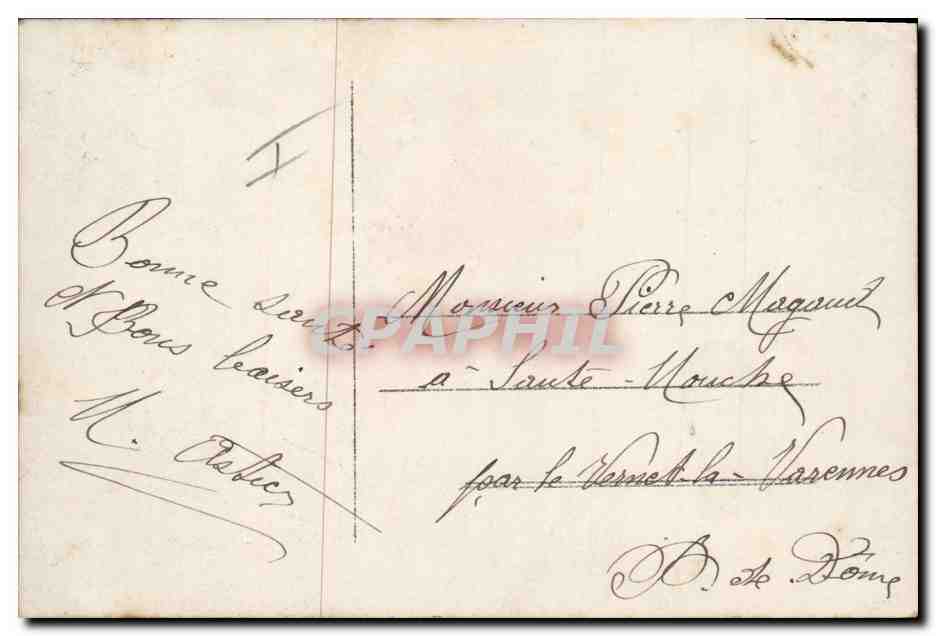 I
Bonne santé
Bons baisers
Monsieur Pierre Magaud
à Sauté-Mouche
par le Vernet-la-Varennes
P. de Dôme
CPAPHIL